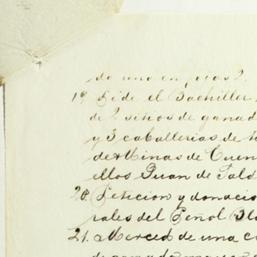 de una en
19 Pide el Bachiller
de 2 sitios de ganad
y 3 caballerias de t
de Minas de Cuen
ellos Juan de Sald
20. Peticion y donacio
rales del Peñol
21. Merced de una c